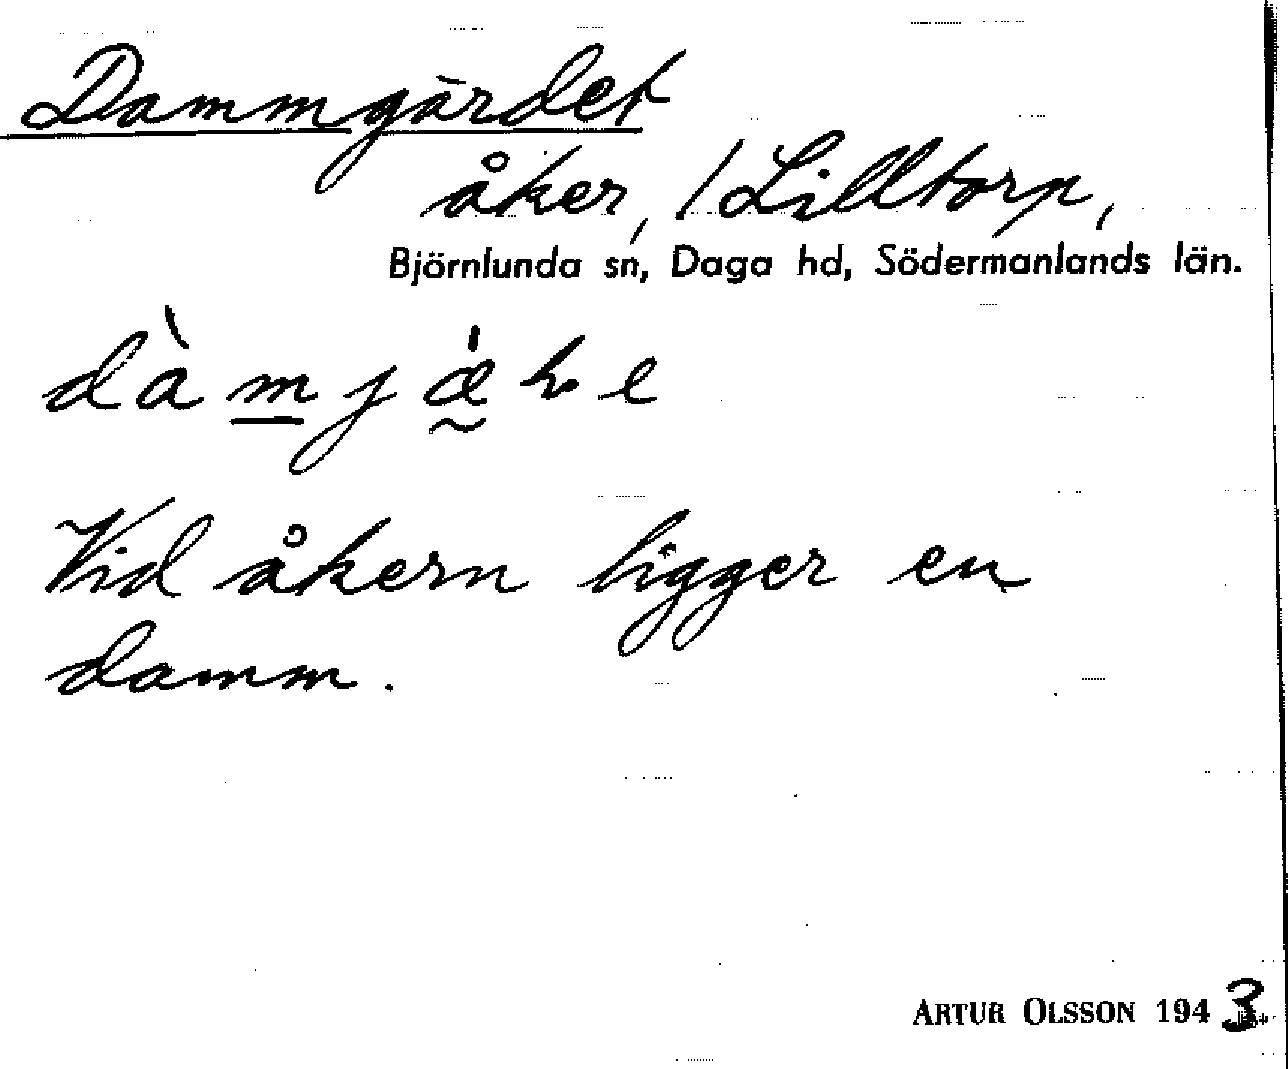 Dammgärdet
åker, / Lilltorp,
Björnlunda sn, Daga hd, Södermanlands län.
Vid åkern ligger en
damm.
ARTUR OLSSON 1943